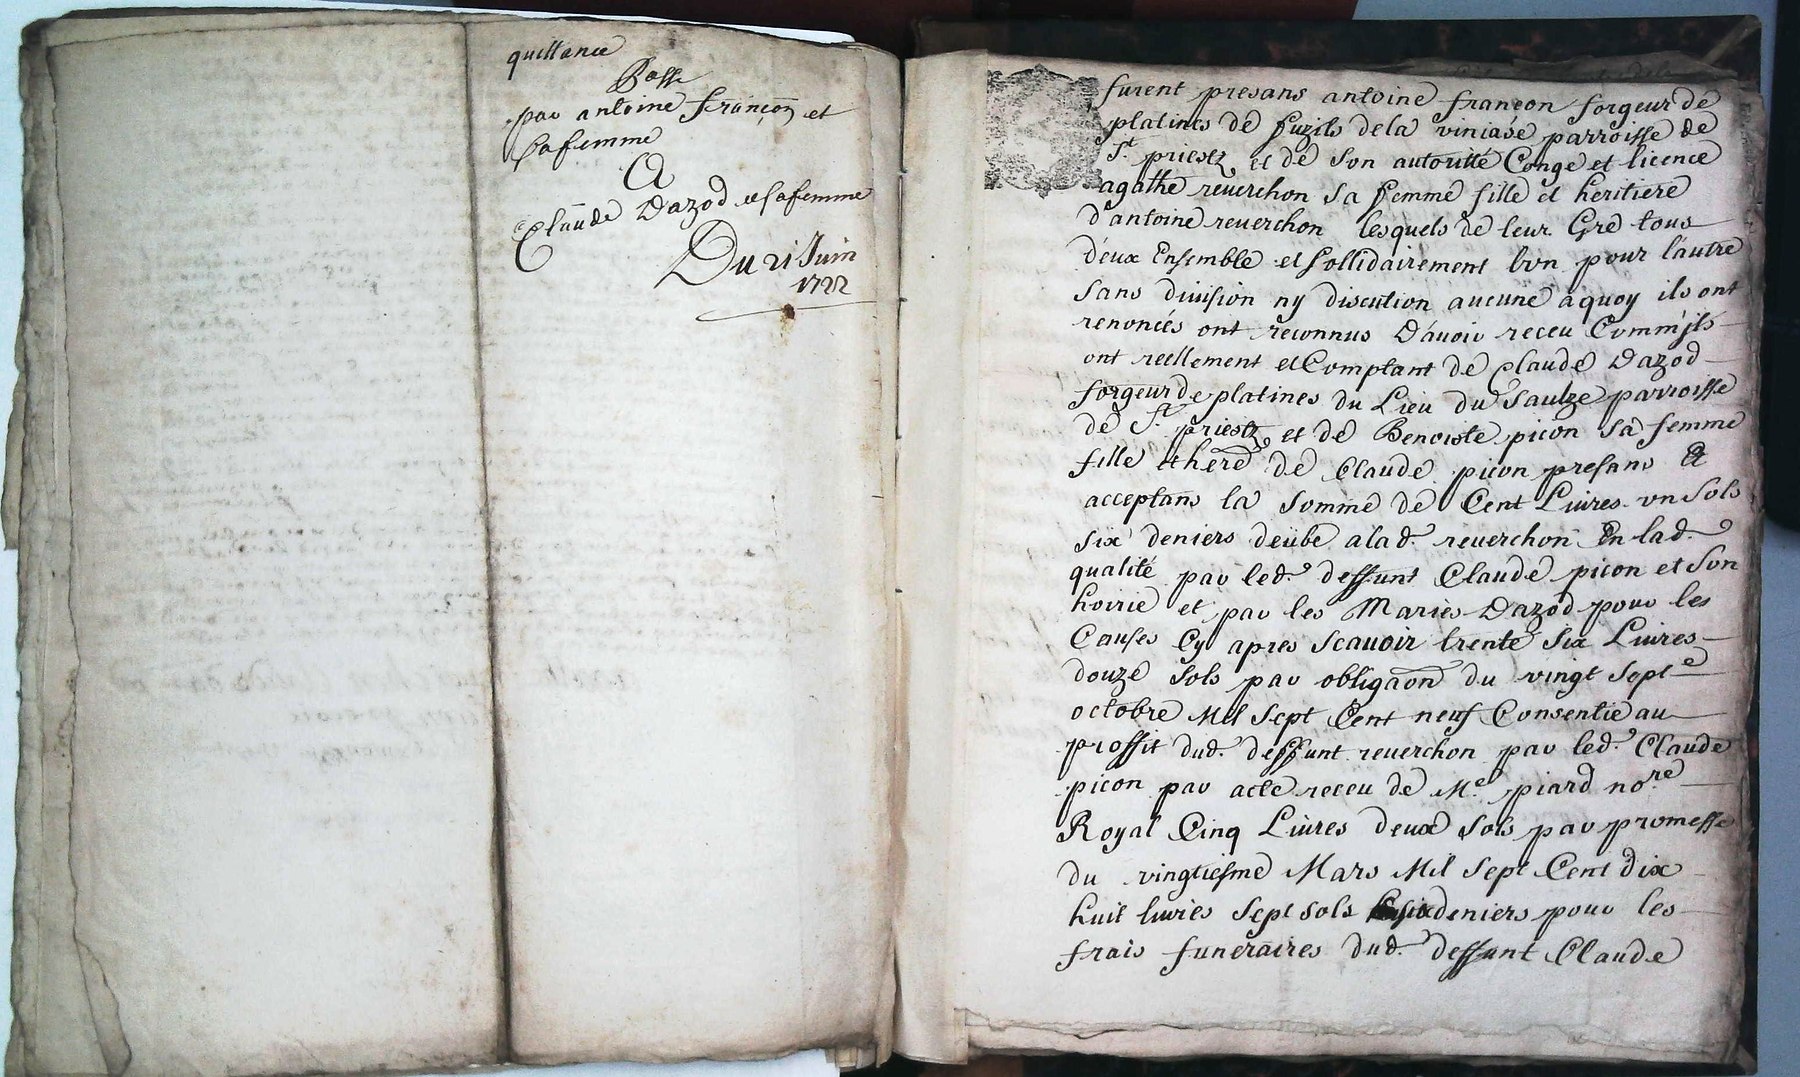 quittance
Passé
par antoine françon et
sa femme
A
Claude Dazod et sa femme
Du 21 Juin
1722
furent presans antoine françon forgeur de
platines de fuzils de la viniasé parroisse de
St. priestz et de son autoritté Congé et licence
agathe reuerchon sa femme fille et heritiere
d'antoine reuerchon lesquels de leur Gré tous
deux Ensemble et sollidairement lvn pour lautre
sans diuision ny discution aucune a quoy ils ont
renoncés ont reconnus d'auoir receu Comm'jls
ont reellement et Comptant de Claude Dazod
forgeur de platines du Lieu du Saulze parroisse
de St. priestz et de Benoiste picon sa femme
fille et here de Claude picon presans Et
acceptans la somme de Cent Liures vn sols
six deniers deübe a lad. reuerchon En lad.
qualité par led. deffunt Claude picon et son
hoirie et par les Mariés Dazod pour les
Causes Cy apres scauoir trente six Liures
douze sols par obligaon du vingt sept
octobre Mil Sept Cent neuf Consentie au
proffit dud. deffunt reuerchon par led. Claude
picon par acte receu de Me. piard nore
Royal Cinq Liures deux sols par promesse
du vingtiesme Mars Mil Sept Cent dix
huit liures sept sols six deniers pour les
frais funeraires dud. deffunt Claude